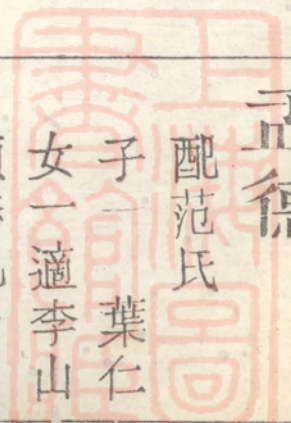 孟德
配范氏
子一 葉仁
女一適李山